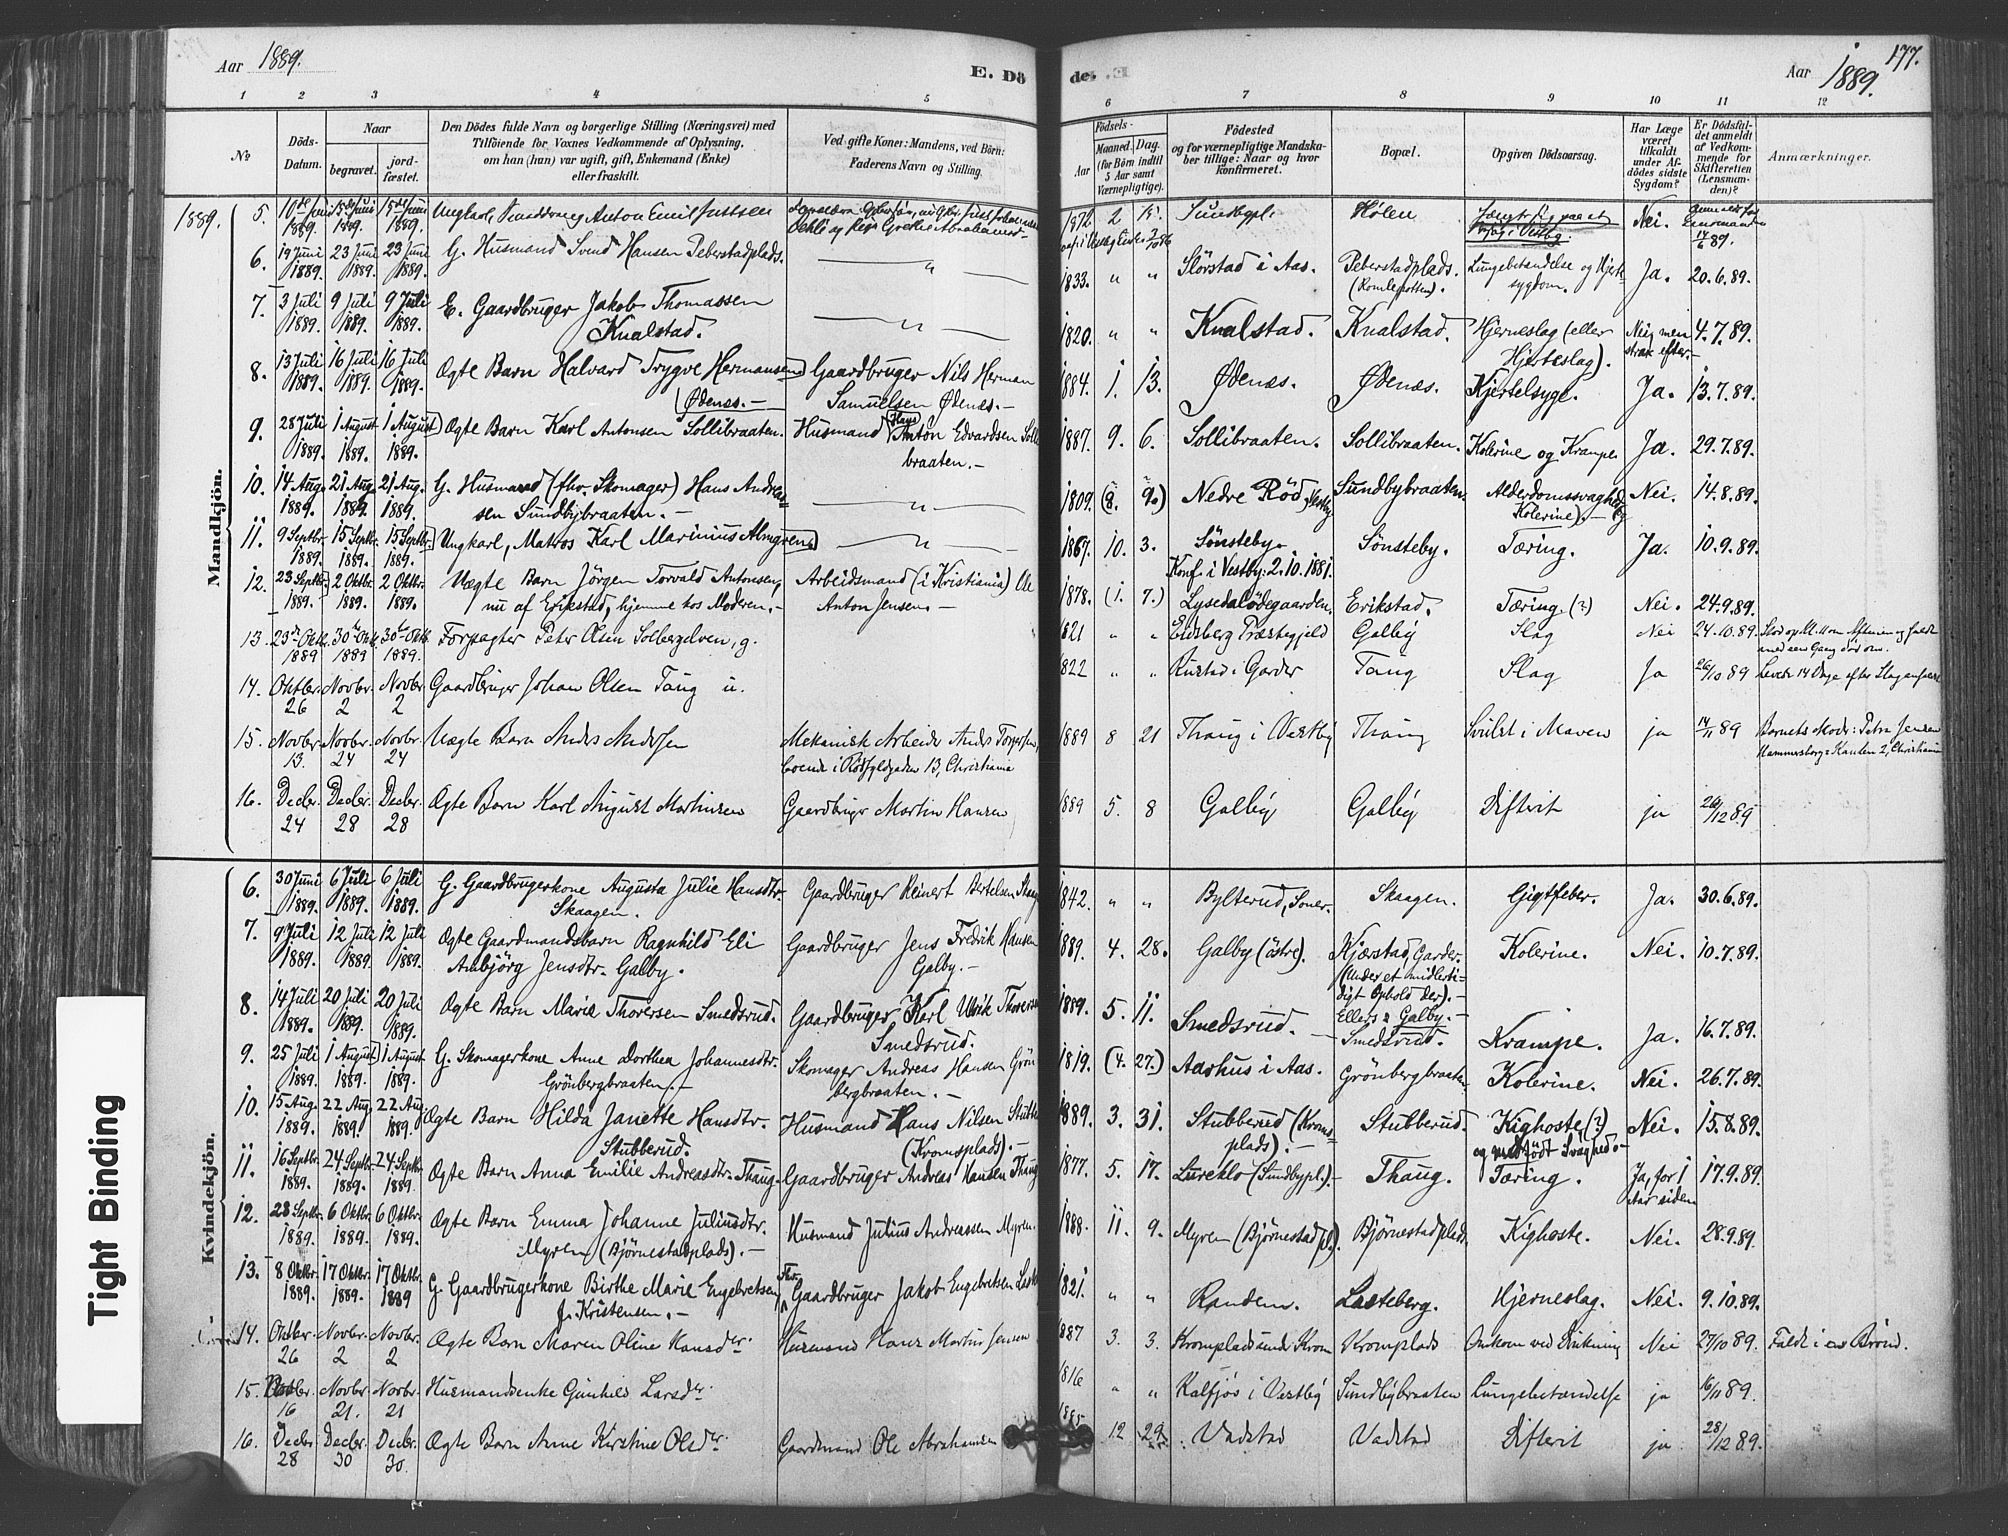 Aar 1889.
E. Dö
de. E
Aar 1889.
177.
1 2 3 4 5 6 7 8 9 10 11 12
No
Döds-Datum.
Naar
begravet.
jord-fæstet.
Den Dödes fulde Navn og borgerlige Stilling (Næringsvei) med
Tilföiende for Voxnes Vedkommende af Oplysning,
om han (hun) var ugift, gift, Enkemand (Enke)
eller fraskilt.
Ved gifte Koner: Mandens, ved Börn:
Faderens Navn og Stilling.
Födsels-
Aar
Maaned. Dag.
(for Börn indtil
5 Aar samt
Værnepligtige).
Födested
og for værnepligtige Mandska-
ber tillige: Naar og hvor
konfirmeret.
Bopæl.
Opgiven Dödsaarsag.
Har Læge
været
tilkaldt
under Af-
dödes sidste
Sygdom?
Er Dödsfal-
det anmeldt
af Vedkom-
mende for
Skifteretten
(Lensman-
den)?
Anmærkninger.
1889.
Mandkjön.
5. 10de Juni 1889. 15de Juni 1889. 15de Juni 1889. Ungkarl Anton Emil Justsen 1872 2 Sundbypl. Hölen Nei. 14/6 89.
6. 19 Juni 1889. 23 Juni 1889. 23 Juni 1889. G. Husmand Svend Hansen Peberstadplads. — " — 1833. " " Slörstad i Aas. Peberstadplads. Lungebetændelse og Hjertesygdom. Ja. 20.6.89.
7. 3 Juli 1889. 9 Juli 1889. 9 Juli 1889. E. Gaardbruger Jakob Thomassen Knalstad. — " — 1820. " " Knalstad. Knalstad. Hjerneslag (eller Hjerteslag). Nei, men strax efter.- 4.7.89.
8. 13 Juli 1889. 16 Juli 1889. 16 Juli 1889. Ægte Barn Halvard Trygve Hermansen (Ødenæs.- Gaardbruger Nils Herman Samuelsen Ødenæs.- 1884. 1. 13. Ødenæs. Ødenæs. Kjertelsyge. Ja. 13.7.89.
9. 28 Juli 1889. 1 August 1889. 1 August 1889. Ægte Barn Karl Antonsen Sollibraaten. Husmand Hans Anton Edvardsen Sollibraaten.- 1887. 9. 6. Sollibraaten. Sollibraaten. Kolerine og Krampe. Ja. 29.7.89.
10. 14 Aug. 1889. 21 Aug. 1889. 21 Aug. 1889. G. Husmand (fhv. Skomager) Hans Andreassen Sundbybraaten.- — " — 1809. (8. 9.) Nedre Röd, Vestby Sundbybraaten. Alderdomssvaghed (og Kolerine).- Nei. 14.8.89.
11. 9 Septbr. 1889. 15 Septbr. 1889. 15 Septbr. 1889. Ungkarl, Matros Karl Marinius Almgren — " — 1867. 10. 3. Sönsteby. Konf. i Vestby: 2.10.1881. Sönsteby. Tæring. Ja. 10.9.89.
12. 23 Septbr. 1889. 2 Oktbr. 1889. 2 Oktbr. 1889. Uægte Barn Jörgen Torvald Antonsen, nu af Erikstad, hjemme hos Moderen.- Arbeidsmand (i Kristiania) Ole Anton Jensen.- 1878. (1. 7.) Lysedalödegaarden. Erikstad. Tæring. (?) Nei. 24.9.89.
13. 23de Oktbr 1889 30te Oktb 1889 30te Oktb 1889. Forpagter Peter Olsen Solbergelven, g. 1821 " " Eidsberg Præstegjeld Galby Slag Nei 24.10.89.
14. Oktbr. 26 Novbr. 2 Novbr. 2 Gaardbruger Johan Olsen Taug u. 1822 " " Rustad i Garder Taug Slag Ja 26/10 89 Levede 14 Dage efter Slaganfaldet
15. Novbr. 13. Novbr. 24 Novbr. 24 Uægte Barn Anders Andersen Mekanisk Arbeider Anders Torgersen, boende i 13, Christiania 1889 8 21 Thaug i Vestby Thaug Svulst i Maven ja 14/11 89 Barnets Moder: Petra Jensen Hammersborg 2, Christiania
16. Decbr. 24 Decbr. 28 Decbr. 28 Ægte Barn Karl August Martinsen Gaardbruger Martin Hansen 1889 5 8 Galby Galby Difterit ja 26/12 89
Kvindekjön.
6. 30 Juni 1889. 6 Juli 1889. 6 Juli 1889. G. Gaardbrugerkone Augusta Julie Hansdtr. Skaagen. Gaardbruger Reinert Bertelsen Skaagen 1842. " " Bylterud, Soner. Skaagen. Gigtfeber. Ja. 30.6.89.
7. 9 Juli 1889. 12 Juli 1889. 12 Juli 1889. Ægte Gaardmandsbarn Ragnhild Eli Anbjörg Jensdtr. Galby. Gaardbruger Jens Fredrik Hansen Galby.- 1889. 4. 28. Galby (östre). Kjærstad, Garder. (Under et midlertidigt Ophold der).- Ellers: Galby.- Kolerine. Nei. 10.7.89.
8. 14 Juli 1889. 20 Juli 1889. 20 Juli 1889. Ægte Barn Marie Thorersen Smedsrud. Gaardbruger Karl Ulrik Thorersen Smedsrud. 1889. 5. 11. Smedsrud. Smedsrud. Krampe. Ja. 16.7.89.
9. 25 Juli 1889. 1 August 1889. 1 August 1889. G. Skomagerkone Anne Dorthea Johannesdtr. Grönbergbraaten.- Skomager Andreas Hansen Grönbergbraaten.- 1819. (4. 27.) Aarhus i Aas. Grönbergbraaten Kolerine. Nei. 26.7.89.
10. 15 Aug. 1889. 22 Aug. 1889. 22 Aug. 1889. Ægte Barn Hilda Janette Hansdtr. Stubberud. Husmand Hans Nilsen Stubberud (Kromsplads).- 1889. 3. 31. Stubberud (Kromsplads).- Stubberud. Kighoste (?) og medfödt Svaghed.- Nei. 15.8.89.
11. 16 Septbr. 1889. 24 Septbr. 1889. 24 Septbr. 1889. Ægte Barn Anna Emilie Andreasdtr. Thaug. Gaardbruger Andreas Hansen Thaug 1877. 5. 17. Lureklo (Sundbypl.)- Thaug. Tæring. Ja, for 1 Aar siden 17.9.89.
12. 28 Septbr. 1889. 6 Oktbr. 1889. 6 Oktbr. 1889. Ægte Barn Emma Johanne Juliusdtr. Myren (Bjørnestadplads).- Husmand Julius Andreassen Myren. 1888. 11. 9. Myren (Bjørnestadpl.). Bjørnestadplads. Kighoste. Nei. 28.9.89.
13. 8 Oktbr. 1889. 17 Oktbr. 1889. 17 Oktbr. 1889 G. Gaardbrugerkone Birthe Marie Engebretsen f. Kristensen.- Fhv. Gaardbruger Jakob Engebretsen 1821. " " Randem. Lasteberg. Hjerneslag. Nei. 9.10.89.
14. Oktbr. 26 Novbr. 2 Novbr. 2 Ægte Barn Maren Oline Hansdtr. Husmand Hans Martin Jensen 1887 3. 3. Kromplads under Krom Kromplads Omkom ved Drukning Nei 27/10 89. Faldt i en Brønd.
15. Novbr. 16 Novbr. 21. Novbr. 21 Husmandsenke Gunhild Larsdtr. 1816 " " Kalfjös i Vestby Sundbybraaten Lungebetændelse ja 16/11 89.
16. Decbr 28 Decbr. 30 Decbr. 30. Ægte Barn Anne Kirstine Olsdtr. Gaardmand Ole Abrahamsen 1885 12 29 Vadstad Vadstad Difterit ja 28/12 89.
Tight Binding